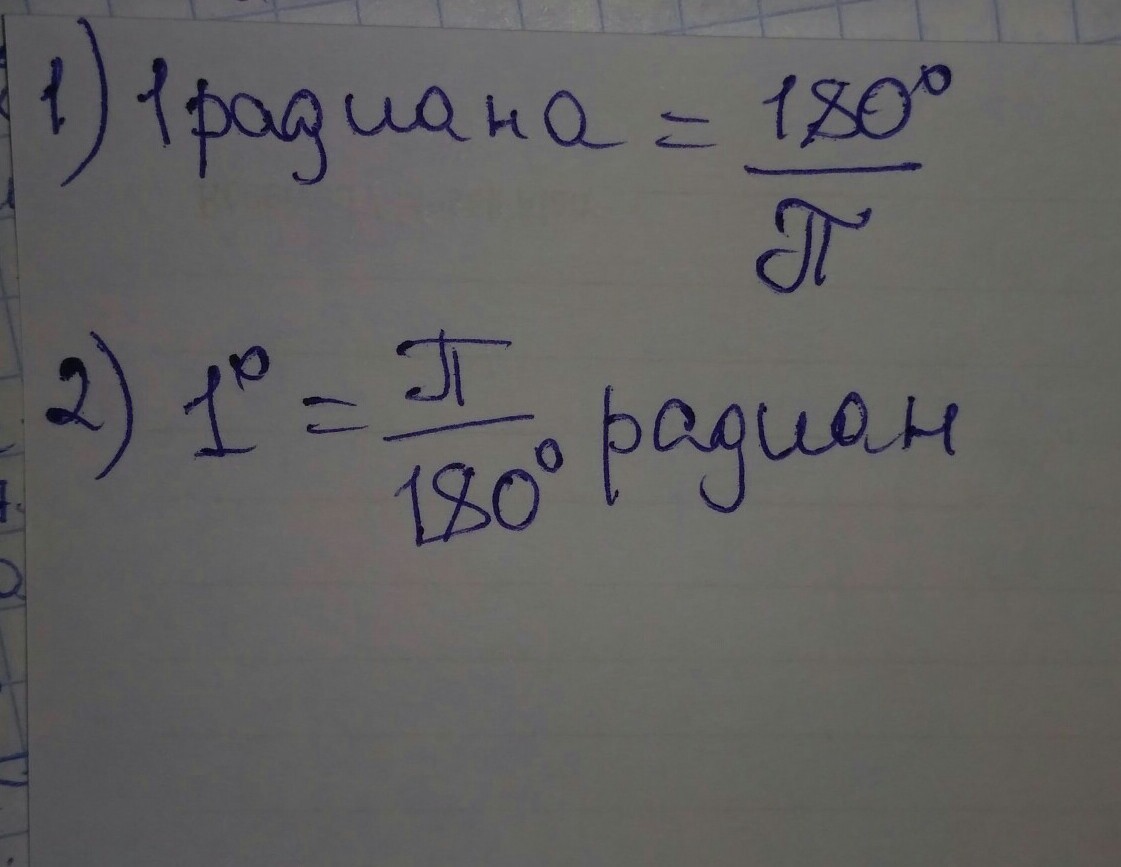 1) 1 радиана = 180°/π
2) 1° = π/180° радиан